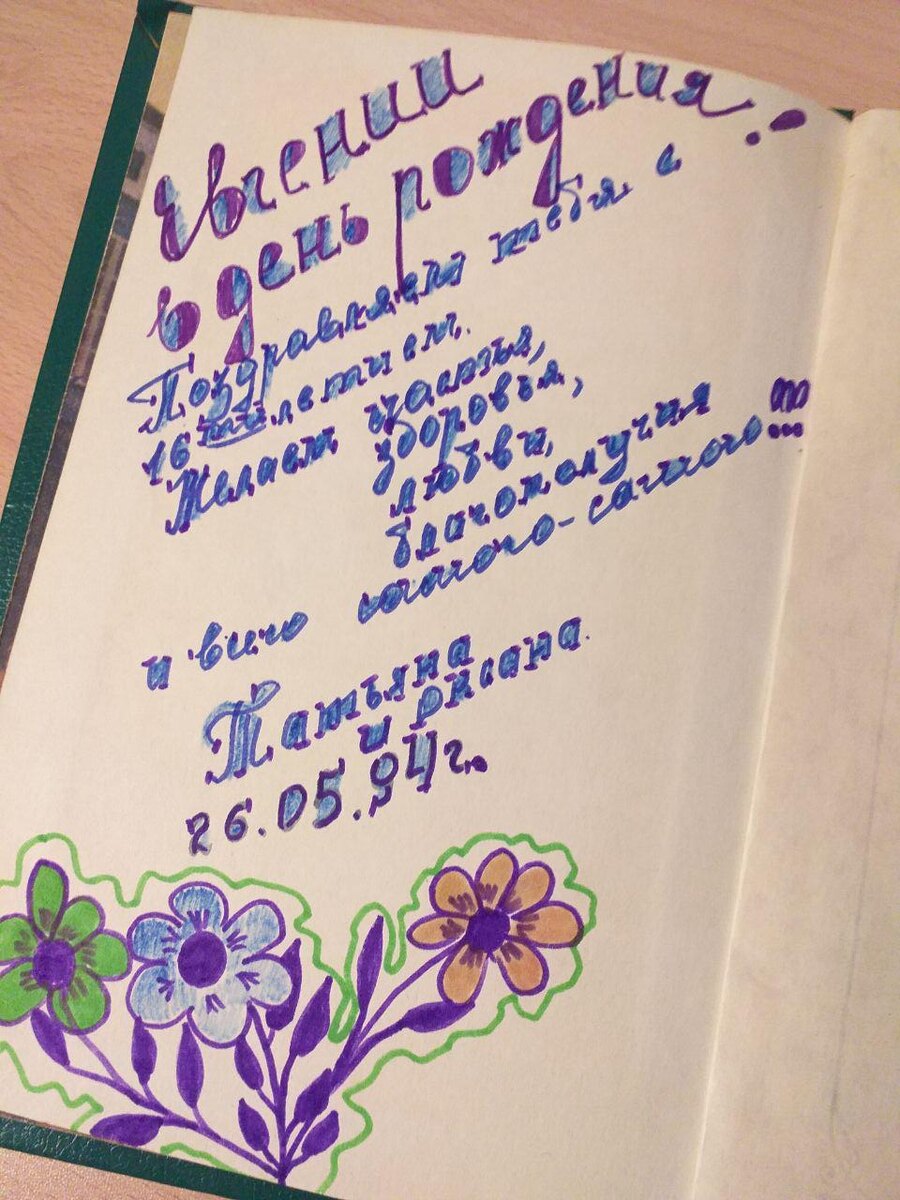 Евгении
в день рождения!
Поздравляем тебя с
16ти летием.
Желаем счастья,
здоровья,
любви,
благополучия
и всего самого-самого!!!
Татьяна
и Оксана.
26.05.94г.